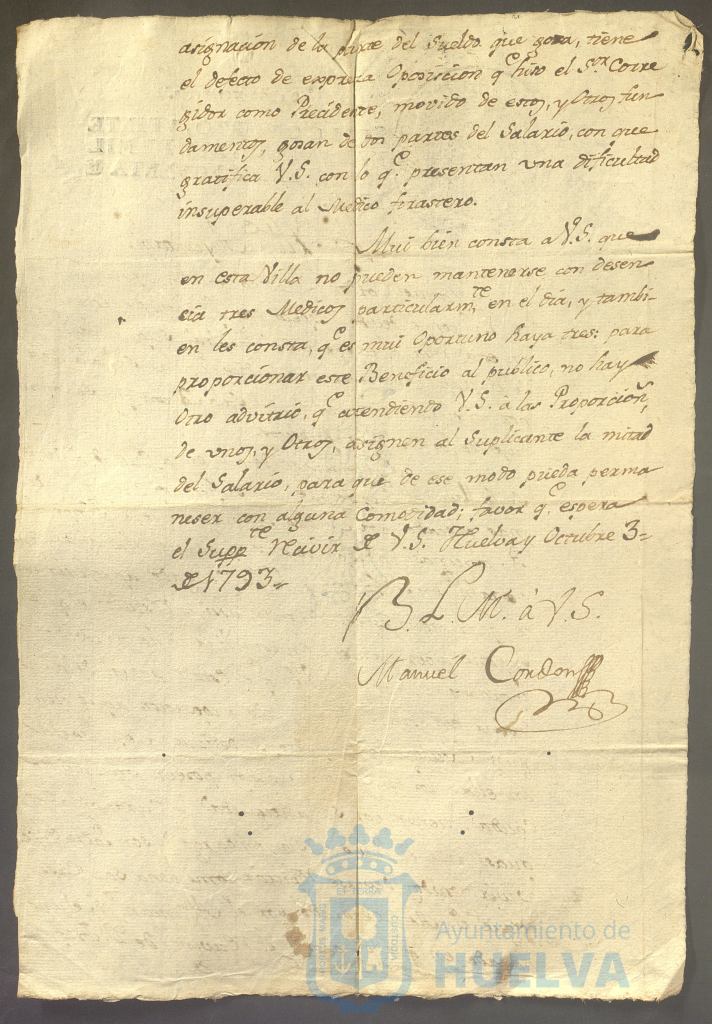 asignacion de la parte del Sueldo que goza, tiene
el defecto de expresa Oposicion q.e hiso el S.or Corre
gidor como Precidente, movido de estos, y Otros fun
damentos, gosan de dos partes del Salario, con que
gratifica V.S. con lo q.e presentan una dificultad
insuperable al Medico forastero.
Mui bien consta a V.S. que
en esta Villa no pueden mantenerse con desen
cia tres Medicos particularm.te en el dia, y tambi-
en les consta, q.e es mui Oportuno haya tres: para
proporcionar este Beneficio al publico, no hay
Otro advitrio, q.e atendiendo V.S. à las Proporcion.s
de unos, y Otros, asignen al Suplicante la mitad
del Salario, para que de ese modo pueda perma
neser con alguna Comodidad; favor q.e espera
el Supp.te resivir de V.S. Huelva y Octubre 3=
de 1793=
B. L. M. à V.S.
Manuel Cordon
Ayuntamiento de
HUELVA